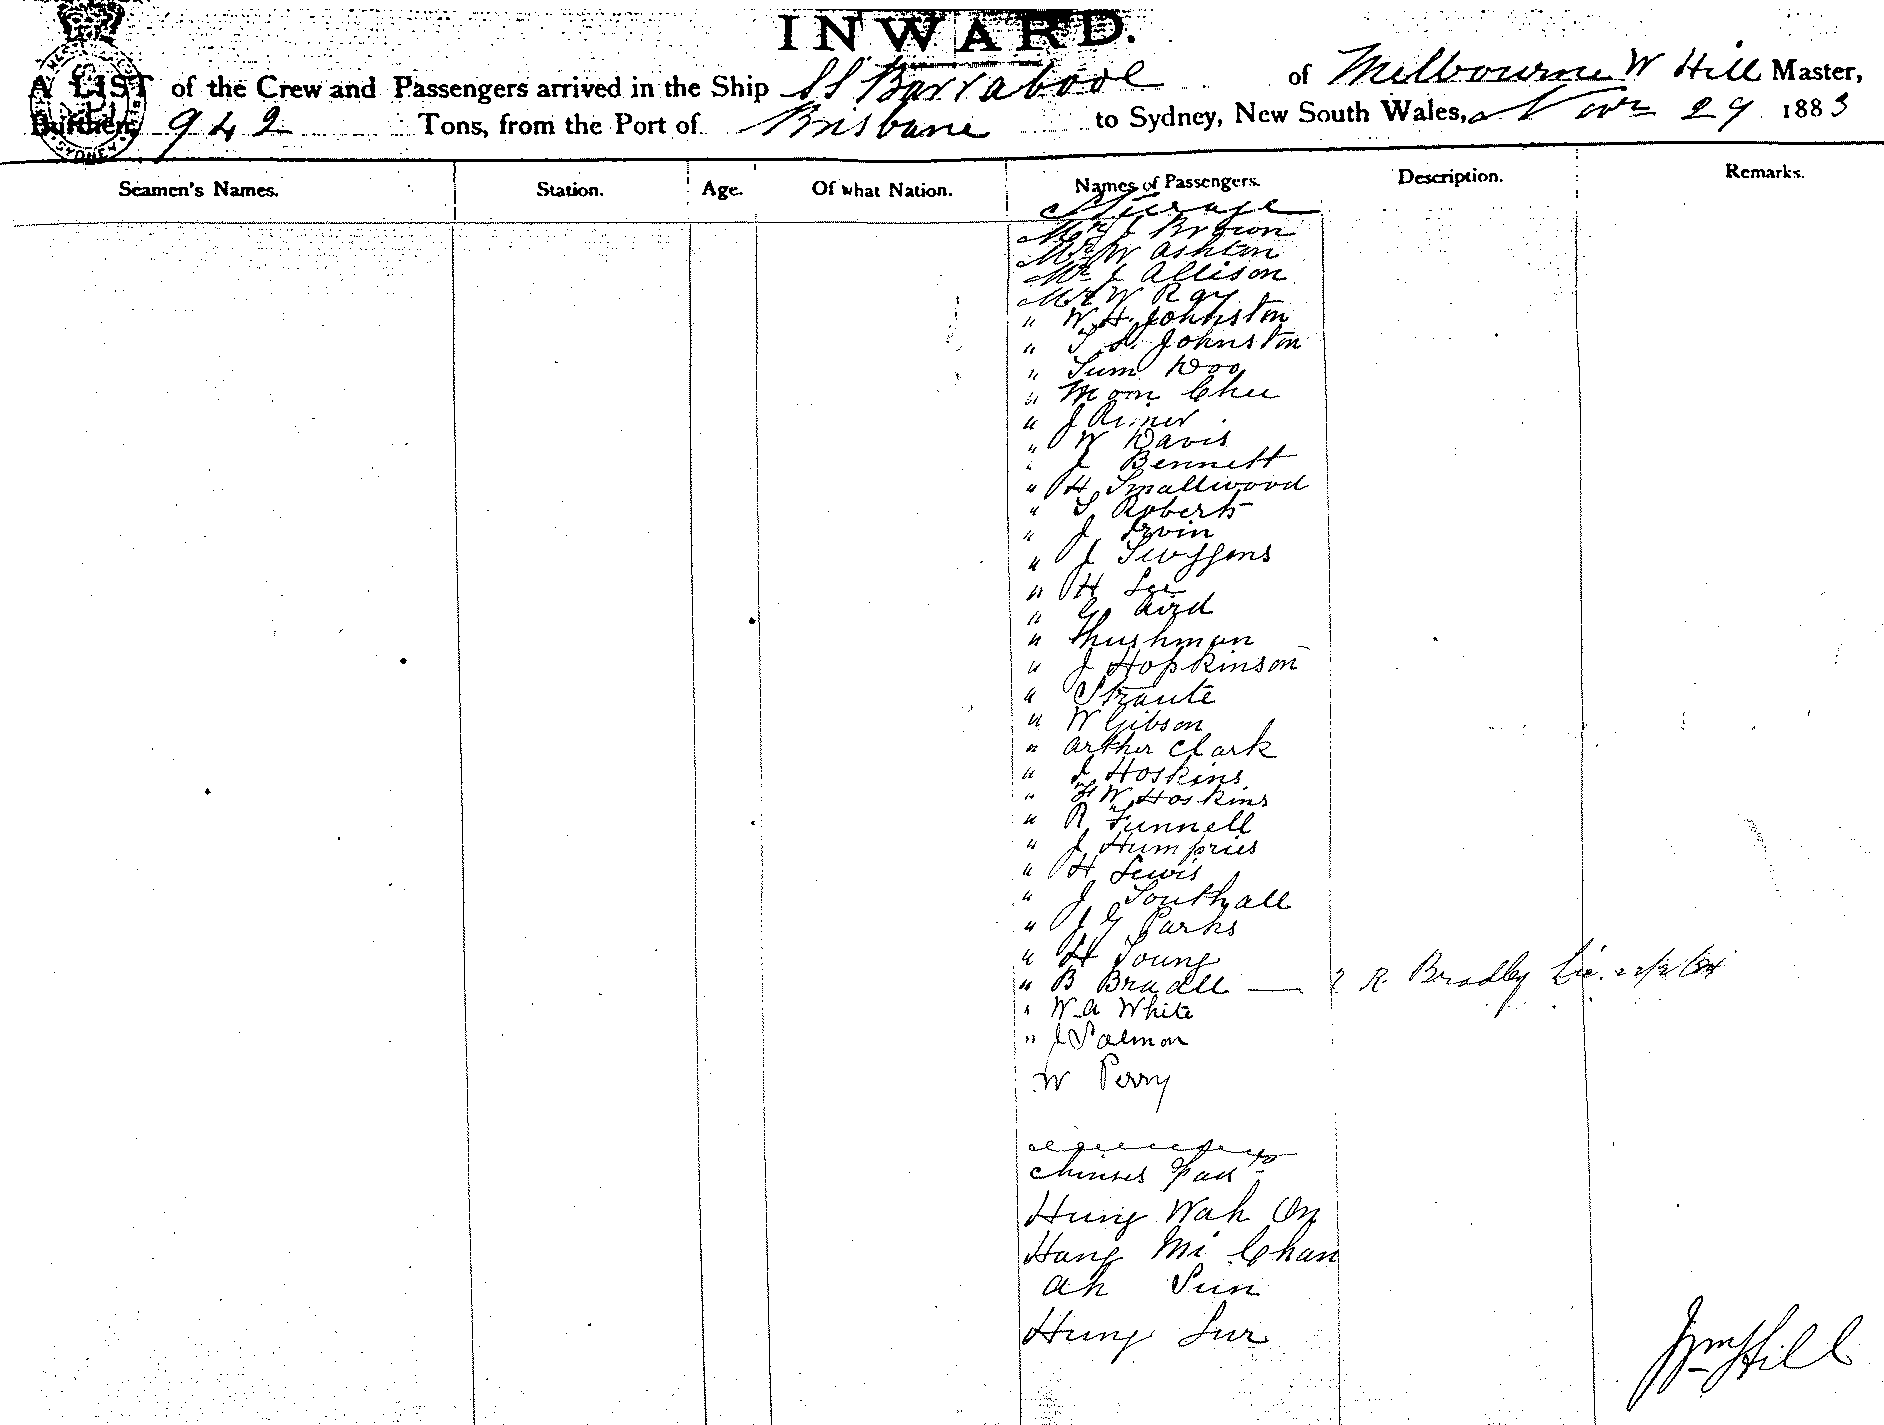 INWARD.
A LIST of the Crew and Passengers arrived in the Ship SS Barrabool of Melbourne W Hill Master,
Burthen, 942 Tons, from the Port of Brisbane to Sydney, New South Wales, Novr 29 1883
Seamen's Names. Station. Age. Of what Nation. Names of Passengers. Description. Remarks.
Steerage
Mr J Brown
Mr W Ashton
Mr J Allison
Mr W Ray
" W H Johnston
" Johnston
" Sum Woo
" Moon Chee
" J
" W Davis
" J Bennett
" H Smallwood
" S Roberts
" J Irvin
" J
" H Lee
" G Aird
" Thushman
" J Hopkinson
" Straute
" W Gibson
" Arther Clark
" J Hoskins
" W Hoskins
" R Funnell
" J Humpries
" H Lewis
" J Southall
" J G Parks
" H Young
" B Bradll — ? R. Bradley
" W A White
" J Salmon
W Perry
Chineis Passrs
Hung Wah On
Hang Mi Chan
Ah Sun
Hung Sur
Wm Hill